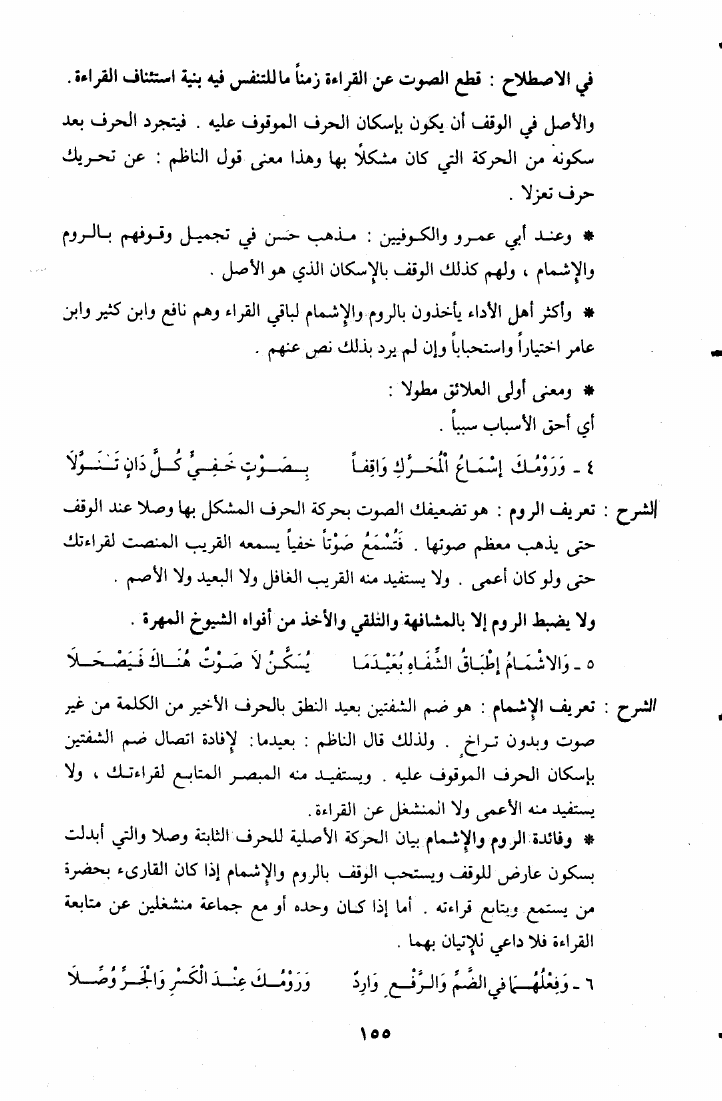 في الاصطلاح : قطع الصوت عن القراءة زمناً ما للتنفس فيه بنية استئناف القراءة .
والأصل في الوقف أن يكون بإسكان الحرف الموقوف عليه . فيتجرد الحرف بعد
سكونه من الحركة التي كان مشكلاً بها وهذا معنى قول الناظم : عن تحريك
حرف تعزلا .
* وعند أبي عمرو والكوفيين : مذهب حسن في تجميل وقوفهم بالروم
والإشمام ، ولهم كذلك الوقف بالإسكان الذي هو الأصل .
* وأكثر أهل الأداء يأخذون بالروم والإشمام لباقي القراء وهم نافع وابن كثير وابن
عامر اختياراً واستحباباً وإن لم يرد بذلك نص عنهم .
* ومعنى أولى العلائق مطولا :
أي أحق الأسباب سبباً .
٤ - وَرَوْمُكَ إِسْمَاعُ الْمُحَرَّكِ وَاقِفاً بِصَوْتٍ خَفِيٍّ كُلَّ دَانٍ تَنَوَّلَا
الشرح : تعريف الروم : هو تضعيفك الصوت بحركة الحرف المشكل بها وصلا عند الوقف
حتى يذهب معظم صوتها . فَتُسْمَعُ صَوْتاً خفياً يسمعه القريب المنصت لقراءتك
حتى ولو كان أعمى . ولا يستفيد منه القريب الغافل ولا البعيد ولا الأصم .
ولا يضبط الروم إلا بالمشافهة والتلقي والأخذ من أفواه الشيوخ المهرة .
٥ - وَالاشْمَامُ إِطْبَاقُ الشِّفَاهِ بُعَيْدَمَا يُسَكَّنُ لاَ صَوْتٌ هُنَاكَ فَيَصْحَلَا
الشرح : تعريف الإشمام : هو ضم الشفتين بعيد النطق بالحرف الأخير من الكلمة من غير
صوت وبدون تراخٍ . ولذلك قال الناظم : بعيدما : لإفادة اتصال ضم الشفتين
بإسكان الحرف الموقوف عليه . ويستفيد منه المبصر المتابع لقراءتك ، ولا
يستفيد منه الأعمى ولا المنشغل عن القراءة .
* وفائدة الروم والإشمام بيان الحركة الأصلية للحرف الثابتة وصلا والتي أبدلت
بسكون عارض للوقف ويستحب الوقف بالروم والإشمام إذا كان القارىء بحضرة
من يستمع ويتابع قراءته . أما إذا كان وحده أو مع جماعة منشغلين عن متابعة
القراءة فلا داعي للإتيان بهما .
٦ - وَفِعْلُهُمَا في الضَّمِّ وَالرَّفْعِ وَارِدٌ وَرَوْمُكَ عِنْدَ الْكَسْرِ وَالْجَرِّ وُصِّلَا
١٥٥